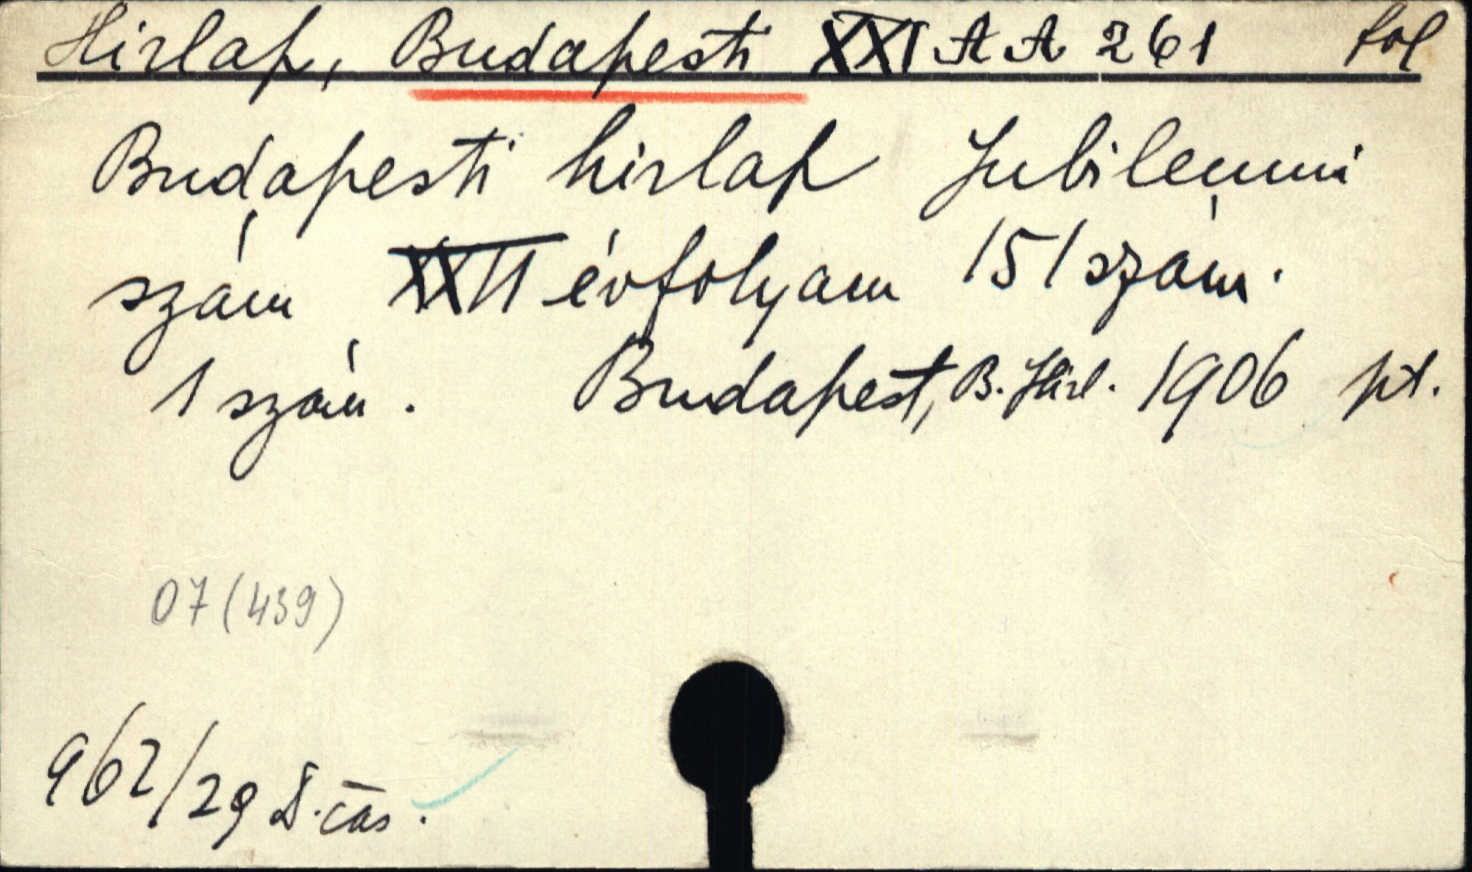 Hirlap, Budapesti XXI A A 261 fol
Budapesti hirlap Jubileumi
szám XXVI évfolyam 151 szám.
1 szám. Budapest, B. Hirl. 1906 pt.
07 (439)
962/29 D. čas.